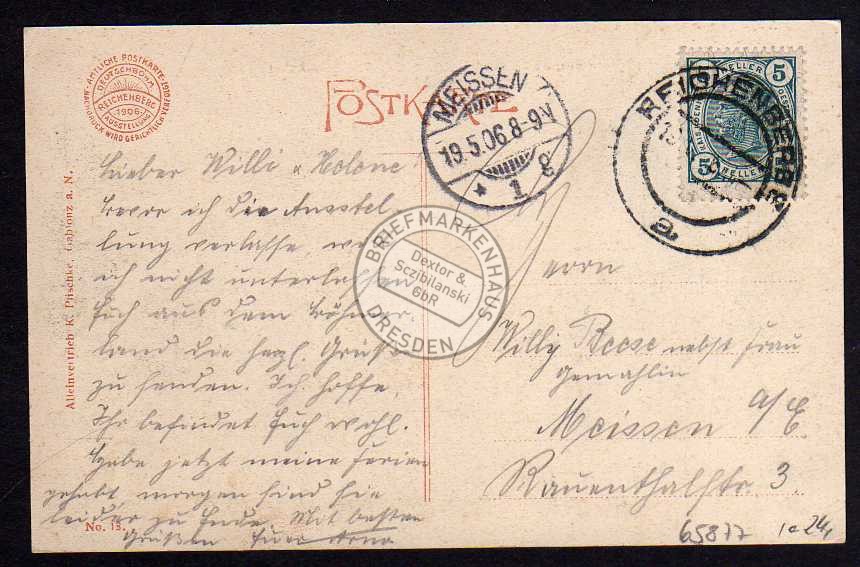 AMTLICHE POSTKARTE 1906
NACHDRUCK WIRD GERICHTLICH VERFOLGT
DEUTSCHBÖHM
REICHENBERG
1906
AUSSTELLUNG
POSTKARTE
MEISSEN
19.5.06.8-9N
* 1 g
REICHENBERG
e
5 HELLER 5
5 HELLER
Lieber Willi u Helene!
Bevor ich die Ausstel
lung verlasse, will
ich nicht unterlassen
Euch aus dem Böhmer
land die herzl. Grüße
zu senden. Ich hoffe,
Ihr befindet Euch wohl.
Habe jetzt meine Ferien
gehabt morgen sind sie
leider zu Ende. Mit besten
Grüßen Euer Arno
Herrn
Willy Reese nebst Frau
Gemahlin
Meissen a/E
Rauenthalstr. 3.
Alleinvertrieb K. Pitschke, Gablonz a. N.
No. 15.
BRIEFMARKENHAUS
Dextor &
Sczibilanski
GbR
DRESDEN
65877
24,